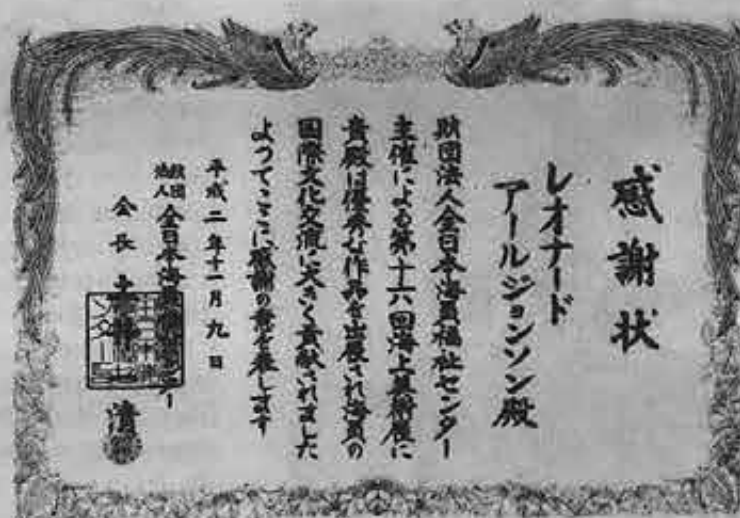 感謝状
レオナード
アールジョンソン殿
財団法人全日本海員福祉センター
主催による第十六回海上美術展に
貴殿は優秀な作品を出展され海員の
国際文化交流に大きく貢献されました
よってここに感謝の意を表します
平成二年十一月九日
財団法人 全日本海員福祉センター
会長 清